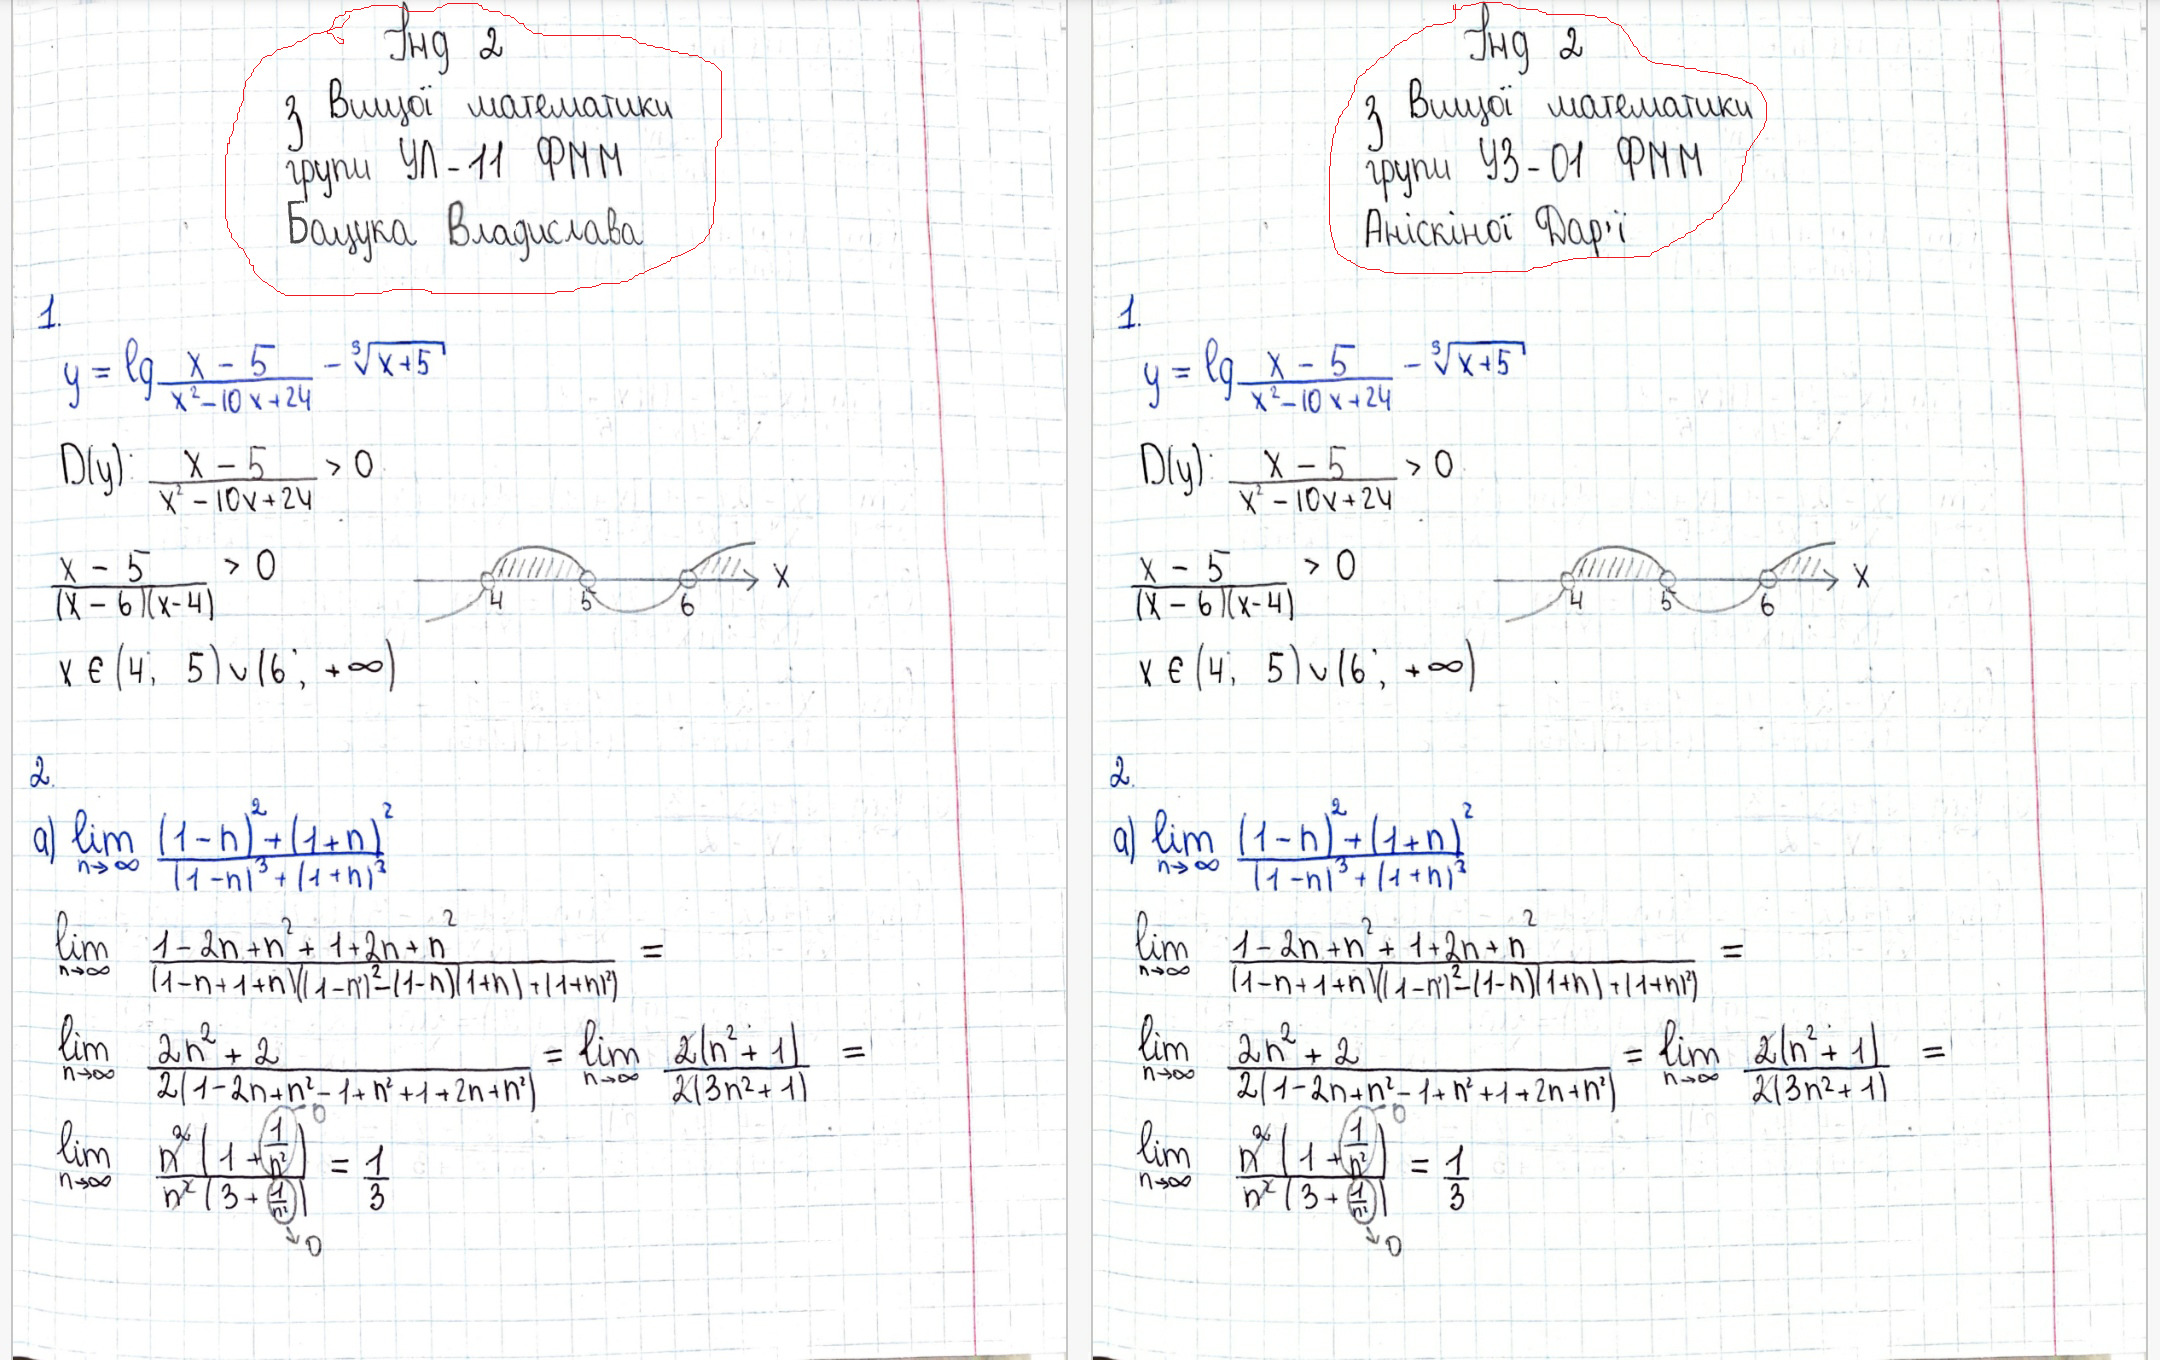 Інд 2
з Вищої математики
групи УЛ-11 ФММ
Бацука Владислава
1.
y = lg (x - 5)/(x² - 10x + 24) - ∛(x+5)
D(y): (x - 5)/(x² - 10x + 24) > 0
(x - 5)/((x - 6)(x - 4)) > 0
4 5 6 x
x ∈ (4; 5) ∨ (6; +∞)
2.
а) lim n→∞ ((1-n)² + (1+n)²)/((1-n)³ + (1+n)³)
lim n→∞ (1 - 2n + n² + 1 + 2n + n²)/((1-n+1+n)((1-n)² - (1-n)(1+n) + (1+n)²)) =
lim n→∞ (2n² + 2)/(2(1 - 2n + n² - 1 + n² + 1 + 2n + n²)) = lim n→∞ 2(n² + 1)/2(3n² + 1) =
lim n→∞ n²(1 + 1/n²)/n²(3 + 1/n²) = 1/3
0
0
Інд 2
з Вищої математики
групи УЗ-01 ФММ
Аніскіної Дар'ї
1.
y = lg (x - 5)/(x² - 10x + 24) - ∛(x+5)
D(y): (x - 5)/(x² - 10x + 24) > 0
(x - 5)/((x - 6)(x - 4)) > 0
4 5 6 x
x ∈ (4; 5) ∨ (6; +∞)
2.
а) lim n→∞ ((1-n)² + (1+n)²)/((1-n)³ + (1+n)³)
lim n→∞ (1 - 2n + n² + 1 + 2n + n²)/((1-n+1+n)((1-n)² - (1-n)(1+n) + (1+n)²)) =
lim n→∞ (2n² + 2)/(2(1 - 2n + n² - 1 + n² + 1 + 2n + n²)) = lim n→∞ 2(n² + 1)/2(3n² + 1) =
lim n→∞ n²(1 + 1/n²)/n²(3 + 1/n²) = 1/3
0
0